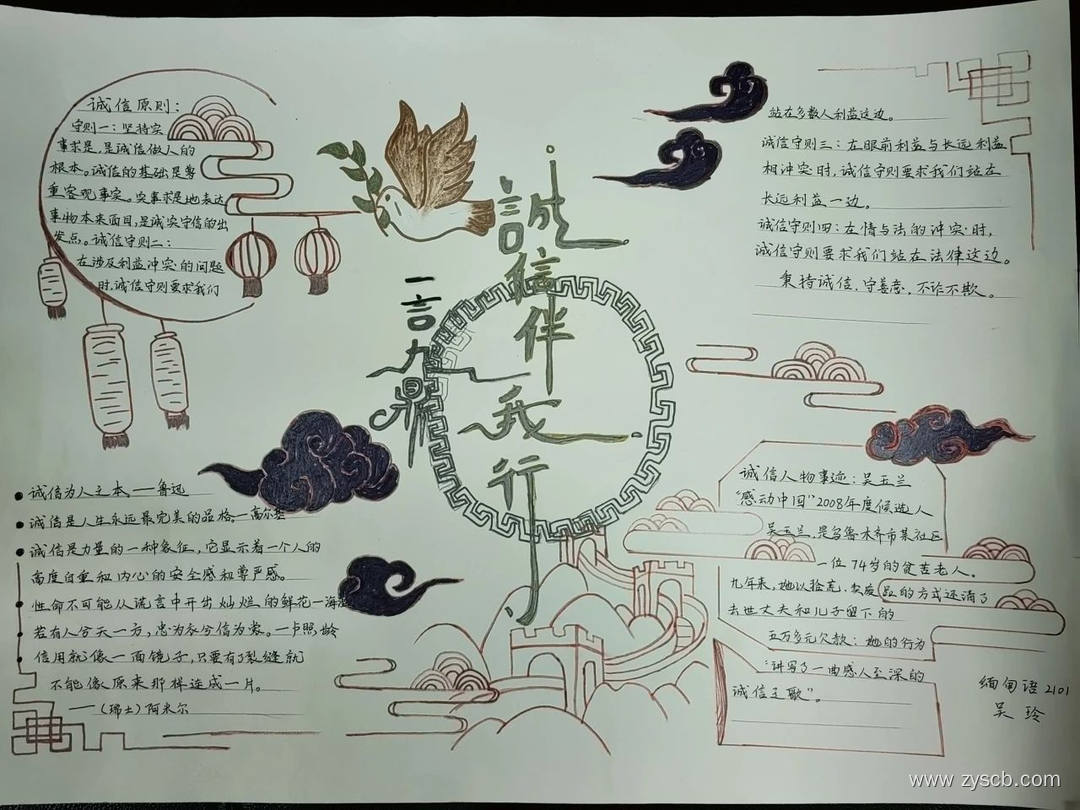 诚信原则：
守则一：坚持实
事求是，是诚信做人的
根本。诚信的基础是尊
重客观事实。实事求是地表达
事物本来面目，是诚实守信的出
发点。诚信守则二：
在涉及利益冲突的问题
时，诚信守则要求我们
站在多数人利益这边。
诚信守则三：在眼前利益与长远利益
相冲突时，诚信守则要求我们站在
长远利益一边。
诚信守则四：在情与法的冲突时，
诚信守则要求我们站在法律这边。
秉持诚信，守善意，不诈不欺。
誠信伴我行
一言九鼎
诚信为人之本——鲁迅
诚信是人生永远最完美的品格。—高尔基
诚信是力量的一种象征，它显示着一个人的
高度自重和内心的安全感和尊严感。
性命不可能从谎言中开出灿烂的鲜花—海涅
若有人兮天一方，忠为衣兮信为裳。—卢照龄
信用就像一面镜子，只要有了裂缝就
不能像原来那样连成一片。
——（瑞士）阿米尔
诚信人物事迹：吴玉兰
“感动中国”2008年度候选人
吴玉兰，是乌鲁木齐市某社区
一位74岁的贫苦老人。
九年来，她以拾荒，卖废品的方式还清了
去世丈夫和儿子留下的
五万多元欠款；她的行为
“讲写了一曲感人至深的
诚信之歌”。
缅甸语2101
吴玲
www.zyscb.com